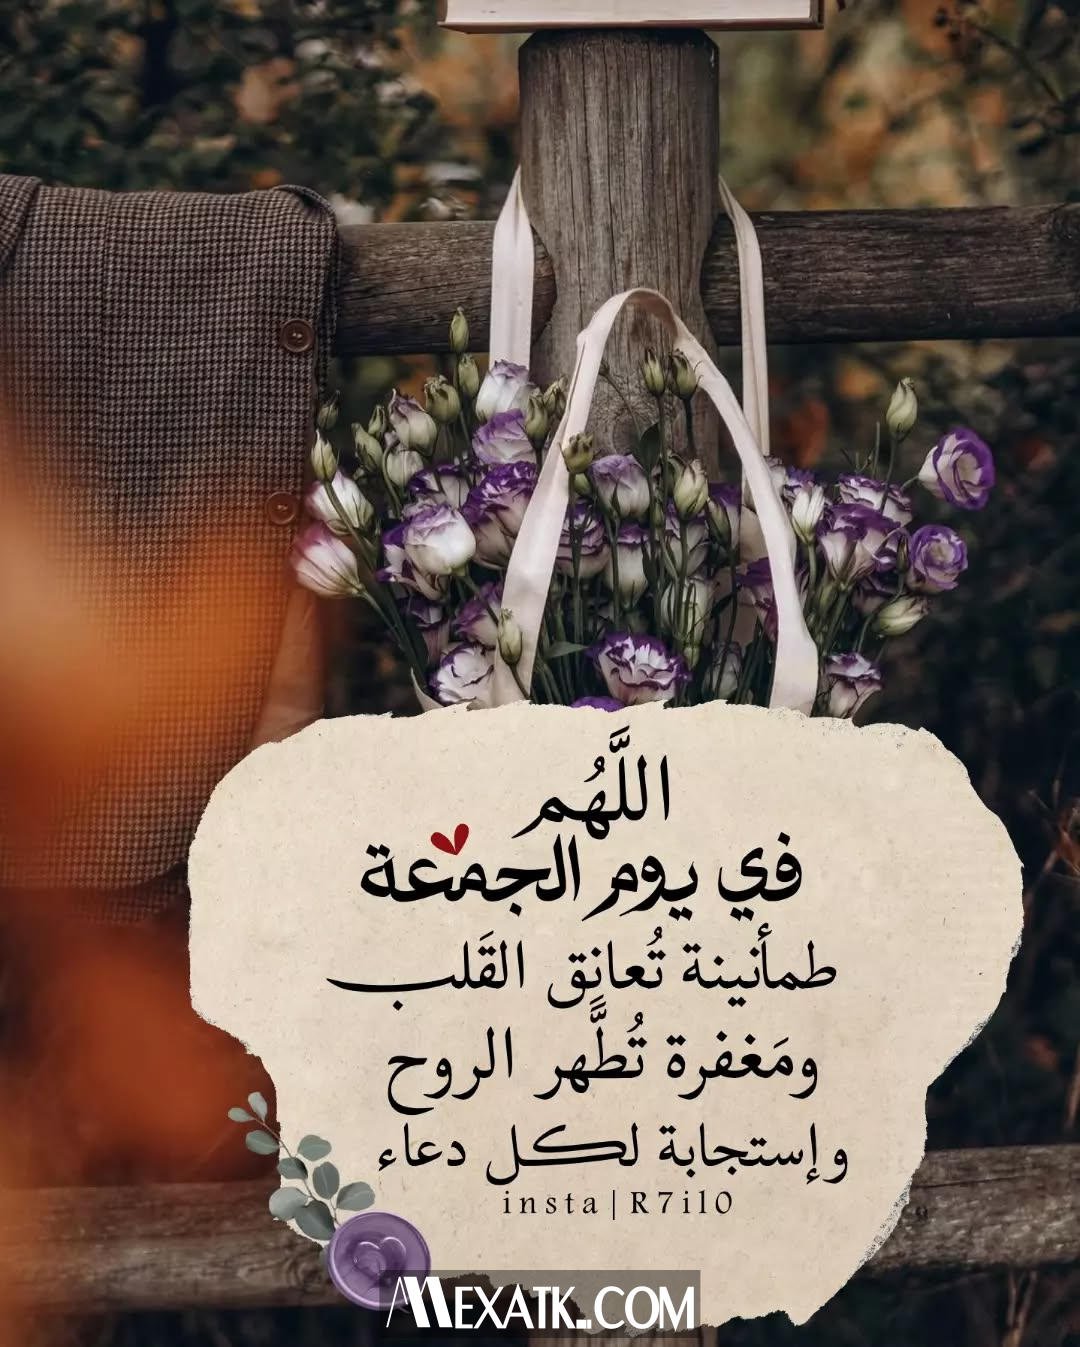 اللَّهُم
في يوم الجمعة
طمأنينة تُعانِق القَلب
ومَغفرة تُطَّهر الروح
وإستجابة لكل دعاء
insta|R7il0
MEXATK.COM